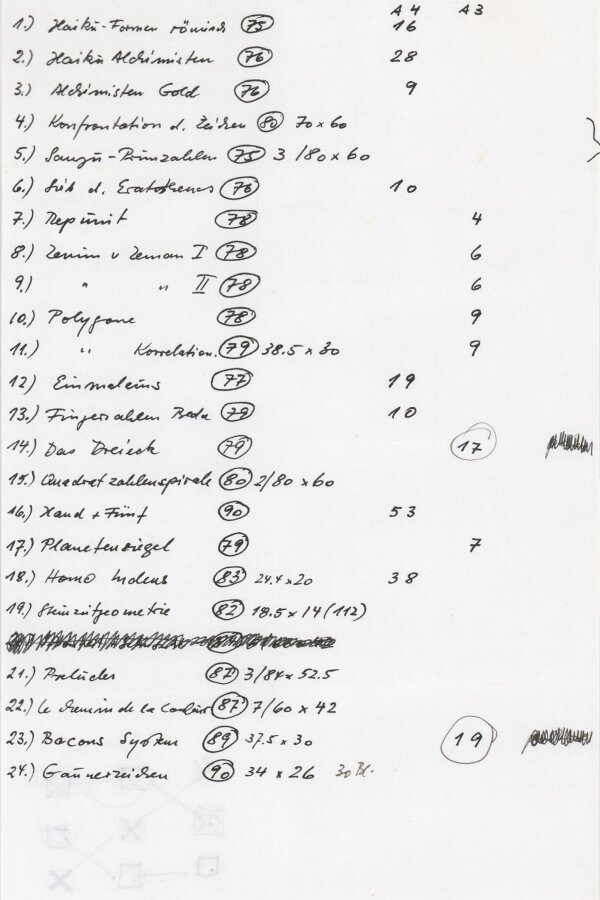 A4 A3
1.) Haikü-Formen römisch 75 16
2.) Haikü Alchimisten 76 28
3.) Alchimisten Gold 76 9
4.) Konfrontation d. Zeichen 80 70 x 60
5.) Sangü-Primzahlen 75 3 /80 x 60
6.) Sieb d. Eratosthenes 76 10
7.) Repünit 78 4
8.) Zenim v Zeman I 78 6
9.) " " II 78 6
10.) Polygone 78 9
11.) " Korrelation. 79 38.5 x 30 9
12) Einmaleins 77 19
13.) Fingerzahlen Beda 79 10
14.) Das Dreieck 79 17
15.) Quadratzahlenspirale 80 2/80 x 60
16.) Hand + Fünf 90 53
17.) Planetensiegel 79 7
18.) Homo ludens 83 24.4 x 20 38
19.) Steinzeitgeometrie 82 18.5 x 14 (112)
21.) Preludes 87 3/84 x 52.5
22.) le chemin de la couleur 87 7/60 x 42
23.) Bacons System 89 37.5 x 30 19
24.) Gaünerzeichen 90 34 x 26 30 Bl.